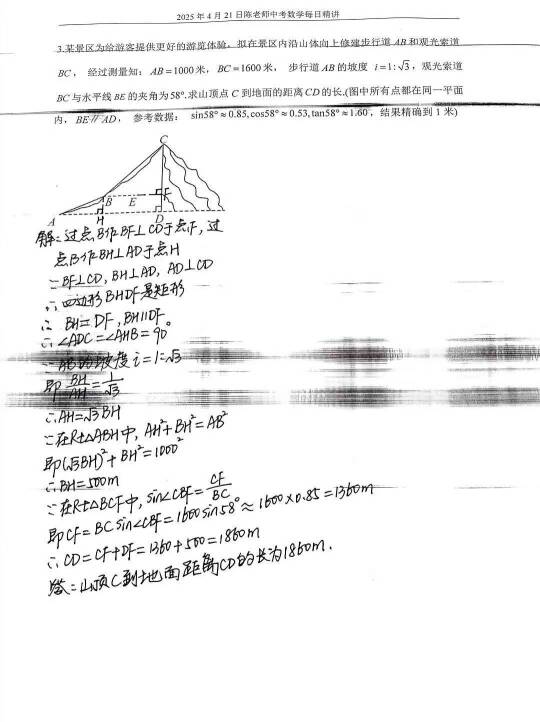 2025 年 4 月 21 日陈老师中考数学每日精讲
3.某景区为给游客提供更好的游览体验，拟在景区内沿山体向上修建步行道 AB 和观光索道
BC， 经过测量知：AB=1000米，BC=1600米， 步行道 AB 的坡度 i=1:√3，观光索道
BC 与水平线 BE 的夹角为 58°.求山顶点 C 到地面的距离 CD 的长.(图中所有点都在同一平面
内，BE∥AD， 参考数据： sin58°≈0.85,cos58°≈0.53,tan58°≈1.60，结果精确到 1 米)
C
B E F
A H D
解：过点B作BF⊥CD于点F，过
点B作BH⊥AD于点H
∵BF⊥CD，BH⊥AD，AD⊥CD
∴四边形BHDF是矩形
∴ BH=DF，BH∥DF
∴∠ADC=∠AHB=90°
∵AB的坡度i=1:√3
即 BH/AH = 1/√3
∴AH=√3BH
∵在Rt△ABH中，AH²+BH²=AB²
即(√3BH)²+BH²=1000²
∴BH=500m
∵在Rt△BCF中，sin∠CBF=CF/BC
即CF=BC sin∠CBF=1600sin58°≈1600×0.85=1360m
∴CD=CF+DF=1360+500=1860m
答：山顶C到地面距离CD的长为1860m.